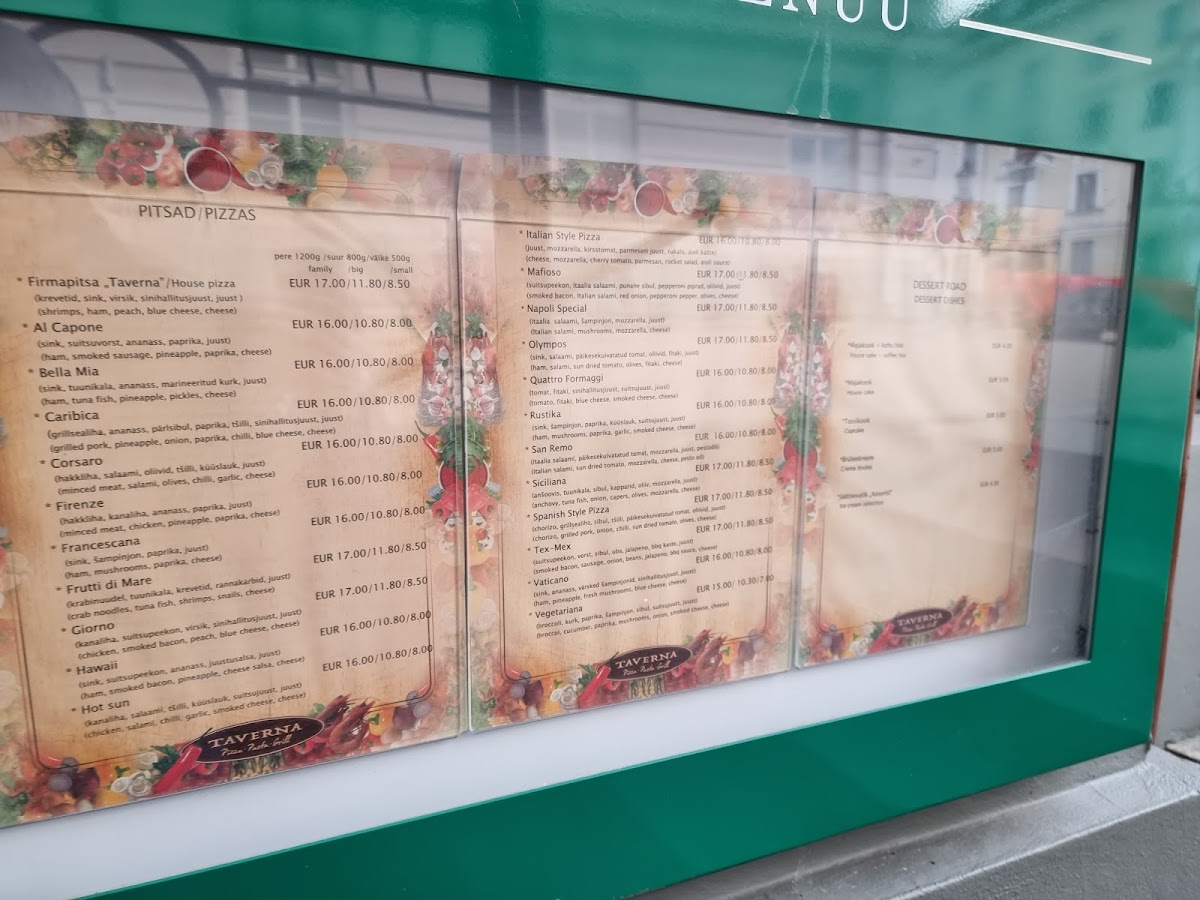 PITSAD/PIZZAS
pere 1200g /suur 800g/väike 500g
family /big /small
* Firmapitsa „Taverna"/House pizza EUR 17.00/11.80/8.50
(krevetid, sink, virsik, sinihallitusjuust, juust )
(shrimps, ham, peach, blue cheese, cheese)
* Al Capone EUR 16.00/10.80/8.00
(sink, suitsuvorst, ananass, paprika, juust)
(ham, smoked sausage, pineapple, paprika, cheese)
* Bella Mia EUR 16.00/10.80/8.00
(sink, tuunikala, ananass, marineeritud kurk, juust)
(ham, tuna fish, pineapple, pickles, cheese)
* Caribica EUR 16.00/10.80/8.00
(grillsealiha, ananass, pärlsibul, paprika, tšilli, sinihallitusjuust, juust)
(grilled pork, pineapple, onion, paprika, chilli, blue cheese, cheese)
* Corsaro EUR 16.00/10.80/8.00
(hakkliha, salaami, oliivid, tšilli, küüslauk, juust)
(minced meat, salami, olives, chilli, garlic, cheese)
* Firenze EUR 16.00/10.80/8.00
(hakkliha, kanaliha, ananass, paprika, juust)
(minced meat, chicken, pineapple, paprika, cheese)
* Francescana EUR 16.00/10.80/8.00
(sink, šampinjon, paprika, juust)
(ham, mushrooms, paprika, cheese)
* Frutti di Mare EUR 17.00/11.80/8.50
(krabinuudel, tuunikala, krevetid, rannakarbid, juust)
(crab noodles, tuna fish, shrimps, snails, cheese)
* Giorno EUR 17.00/11.80/8.50
(kanaliha, suitsupeekon, virsik, sinihallitusjuust, juust)
(chicken, smoked bacon, peach, blue cheese, cheese)
* Hawaii EUR 16.00/10.80/8.00
(sink, suitsupeekon, ananass, juustusalsa, juust)
(ham, smoked bacon, pineapple, cheese salsa, cheese)
* Hot sun EUR 16.00/10.80/8.00
(kanaliha, salaami, tšilli, küüslauk, suitsujuust, juust)
(chicken, salami, chilli, garlic, smoked cheese, cheese)
TAVERNA
Pizza·Pasta·Grill
* Italian Style Pizza EUR 16.00/10.80/8.00
(juust, mozzarella, kirsstomat, parmesani juust, rukola, aioli kaste)
(cheese, mozzarella, cherry tomato, parmesan, rocket salad, aioli sauce)
* Mafioso EUR 17.00/11.80/8.50
(suitsupeekon, itaalia salaami, punane sibul, pepperoni piprad, oliivid, juust)
(smoked bacon, Italian salami, red onion, pepperoni pepper, olives, cheese)
* Napoli Special EUR 17.00/11.80/8.50
(itaalia salaami, šampinjon, mozzarella, juust)
(Italian salami, mushrooms, mozzarella, cheese)
* Olympos EUR 17.00/11.80/8.50
(sink, salaami, päikesekuivatatud tomat, oliivid, fitaki, juust)
(ham, salami, sun dried tomato, olives, fitaki, cheese)
* Quattro Formaggi EUR 16.00/10.80/8.00
(tomat, fitaki, sinihallitusjuust, suitsujuust, juust)
(tomato, fitaki, blue cheese, smoked cheese, cheese)
* Rustika EUR 16.00/10.80/8.00
(sink, šampinjon, paprika, küüslauk, suitsujuust, juust)
(ham, mushrooms, paprika, garlic, smoked cheese, cheese)
* San Remo EUR 16.00/10.80/8.00
(itaalia salaami, päikesekuivatatud tomat, mozzarella, juust, pestoõli)
(italian salami, sun dried tomato, mozzarella, cheese, pesto oil)
* Siciliana EUR 17.00/11.80/8.50
(anšoovis, tuunikala, sibul, kapparid, oliiv, mozzarella, juust)
(anchovy, tuna fish, onion, capers, olives, mozzarella, cheese)
* Spanish Style Pizza EUR 17.00/11.80/8.50
(chorizo, grillsealiha, sibul, tšilli, päikesekuivatatud tomat, oliivid, juust)
(chorizo, grilled pork, onion, chilli, sun dried tomato, olives, cheese)
* Tex-Mex EUR 17.00/11.80/8.50
(suitsupeekon, vorst, sibul, uba, jalapeno, bbq kaste, juust)
(smoked bacon, sausage, onion, beans, jalapeno, bbq sauce, cheese)
* Vaticano EUR 16.00/10.80/8.00
(sink, ananass, värsked šampinjonid, sinihallitusjuust, juust)
(ham, pineapple, fresh mushrooms, blue cheese, cheese)
* Vegetariana EUR 15.00/ 10.30/7.00
(broccoli, kurk, paprika, šampinjon, sibul, suitsujuust, juust)
(broccoli, cucumber, paprika, mushrooms, onion, smoked cheese, cheese)
TAVERNA
Pizza·Pasta·Grill
DESSERT ROAD
DESSERT DISHES
*Majakook + kohv/tee
House cake + coffee/tea
*Majakook
House cake
Cupcake
*Brüleekreem
Creme brulee
Ice cream selection
TAVERNA
Pizza·Pasta·Grill